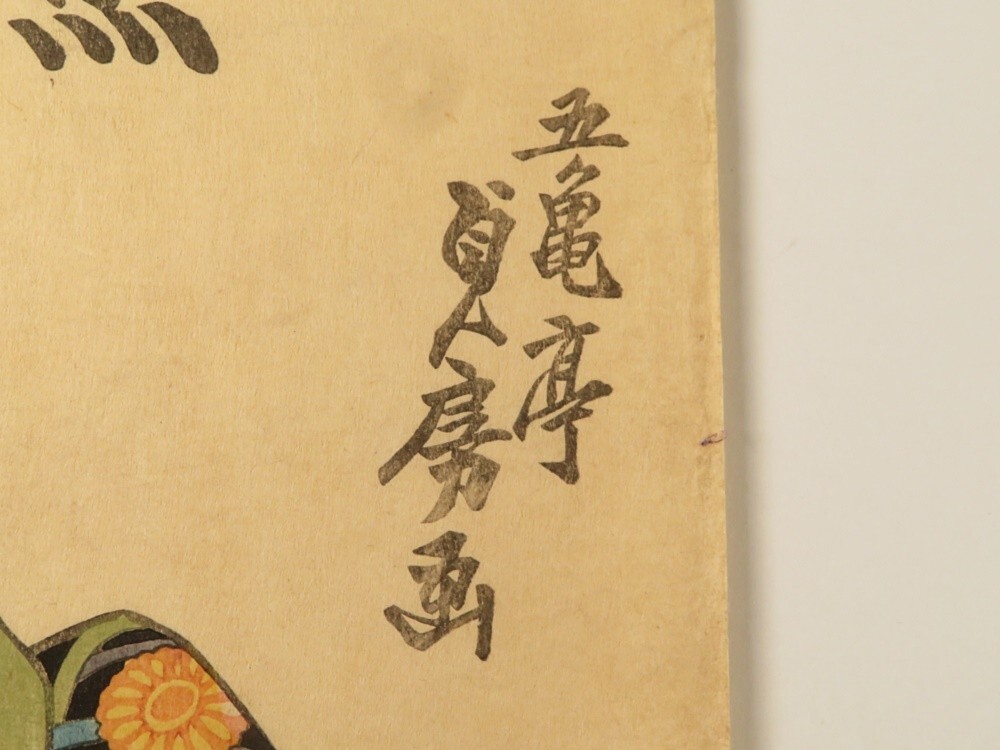 五亀亭
貞房画